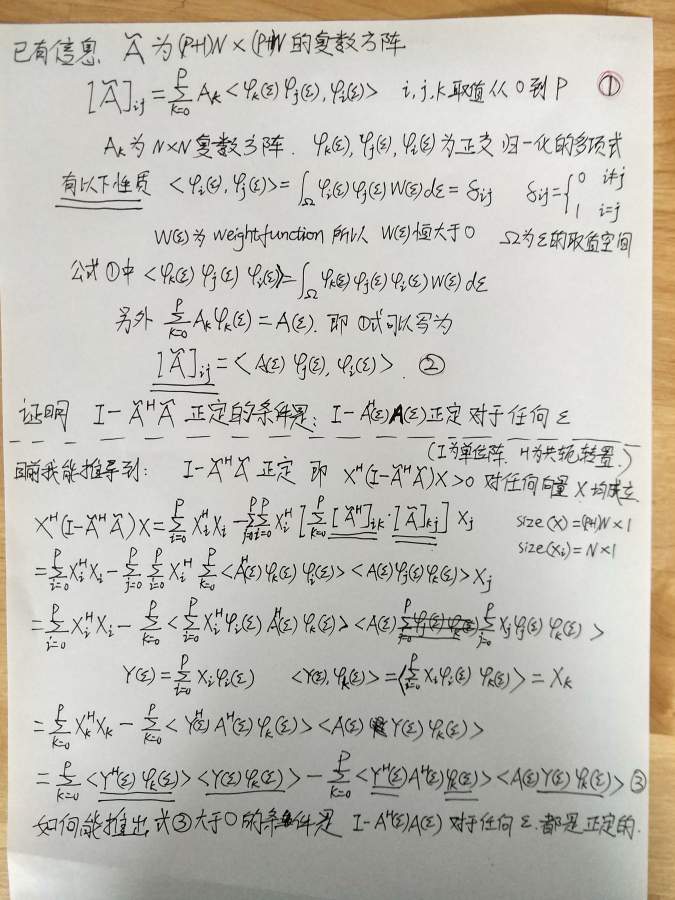 已有信息. Ã 为(P+1)N×(P+1)N的复数方阵
[Ã]ij = ∑_{k=0}^{P} Ak <φk(ξ) φj(ξ), φi(ξ)> i,j,k取值从0到P ①
Ak为N×N复数方阵. φk(ξ), φj(ξ), φi(ξ)为正交归一化的多项式
有以下性质 <φi(ξ), φj(ξ)> = ∫_Ω φi(ξ) φj(ξ) W(ξ) dξ = δij δij = { 0 i≠j 1 i=j
W(ξ)为weightfunction 所以 W(ξ)恒大于0 Ω为ξ的取值空间
公式①中 <φk(ξ) φj(ξ) φi(ξ)> = ∫_Ω φk(ξ) φj(ξ) φi(ξ) W(ξ) dξ
另外 ∑_{k=0}^{P} Ak φk(ξ) = A(ξ). 即①式可以写为
[Ã]ij = <A(ξ) φj(ξ), φi(ξ)>. ②
证明 I − Ã^H Ã 正定的条件是: I − A^H(ξ) A(ξ)正定对于任何ξ
(I为单位阵. H为共轭转置.)
目前我能推导到: I − Ã^H Ã 正定 即 X^H(I − Ã^H Ã)X > 0 对任何向量X均成立
X^H(I − Ã^H Ã)X = ∑_{i=0}^{P} Xi^H Xi − ∑_{j=0}^{P} ∑_{i=0}^{P} Xi^H [∑_{k=0}^{P} [Ã^H]ik · [Ã]kj] Xj size(X) = (P+1)N×1
size(Xi) = N×1
= ∑_{i=0}^{P} Xi^H Xi − ∑_{j=0}^{P} ∑_{i=0}^{P} Xi^H ∑_{k=0}^{P} <A^H(ξ) φk(ξ) φi(ξ)> <A(ξ) φj(ξ) φk(ξ)> Xj
= ∑_{i=0}^{P} Xi^H Xi − ∑_{k=0}^{P} <∑_{i=0}^{P} Xi^H φi(ξ) A^H(ξ) φk(ξ)> <A(ξ) ∑_{j=0}^{P} Xj φj(ξ) φk(ξ)>
Y(ξ) = ∑_{i=0}^{P} Xi φi(ξ) <Y(ξ), φk(ξ)> = <∑_{i=0}^{P} Xi φi(ξ) φk(ξ)> = Xk
= ∑_{k=0}^{P} Xk^H Xk − ∑_{k=0}^{P} <Y^H(ξ) A^H(ξ) φk(ξ)> <A(ξ) Y(ξ) φk(ξ)>
= ∑_{k=0}^{P} <Y^H(ξ) φk(ξ)> <Y(ξ) φk(ξ)> − ∑_{k=0}^{P} <Y^H(ξ) A^H(ξ) φk(ξ)> <A(ξ) Y(ξ) φk(ξ)> ③
如何能推出式③大于0的条件是 I − A^H(ξ) A(ξ) 对于任何ξ. 都是正定的.